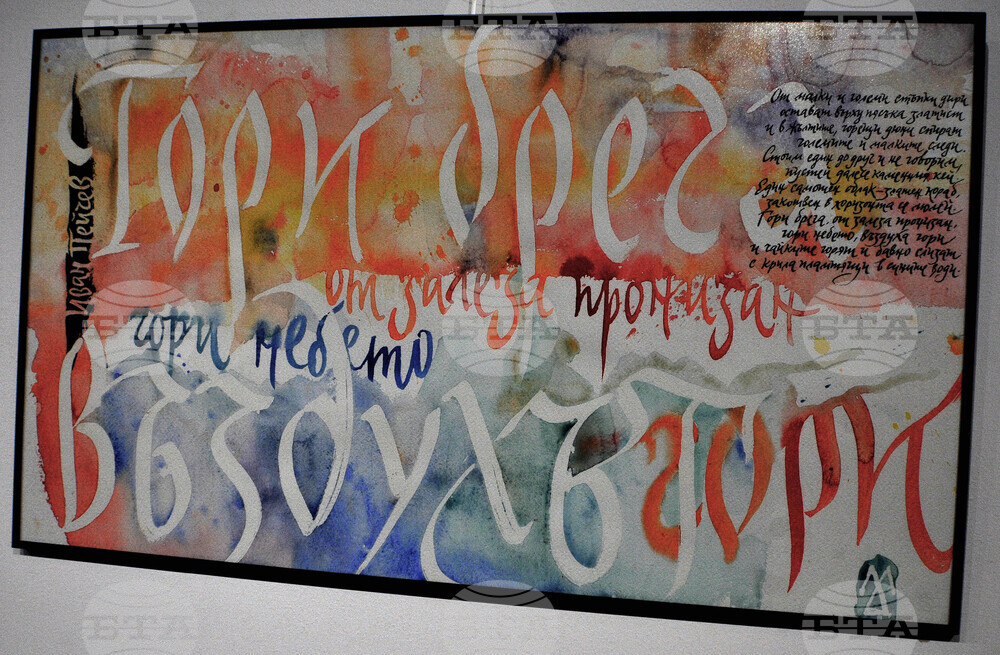 Гори брега
от залеза пронизан
гори небето
Въздухът гори
Иван Пейсов
От малки и големи стъпки дири
остават върху пясъка златист
и в жълтите, горещи дюни спират
големите и малките следи.
Стоим един до друг и не говорим,
пустей далече каменния кей.
Един самотен облак-златен кораб
закотвен в хоризонта се люлей.
Гори брега, от залеза пронизан,
гори небето, въздуха гори
и чайките горят и бавно слизат
с крила пламтящи в сините води.
БТА
БТА
БТА
БТА
БТА
БТА
БТА
БТА
БТА